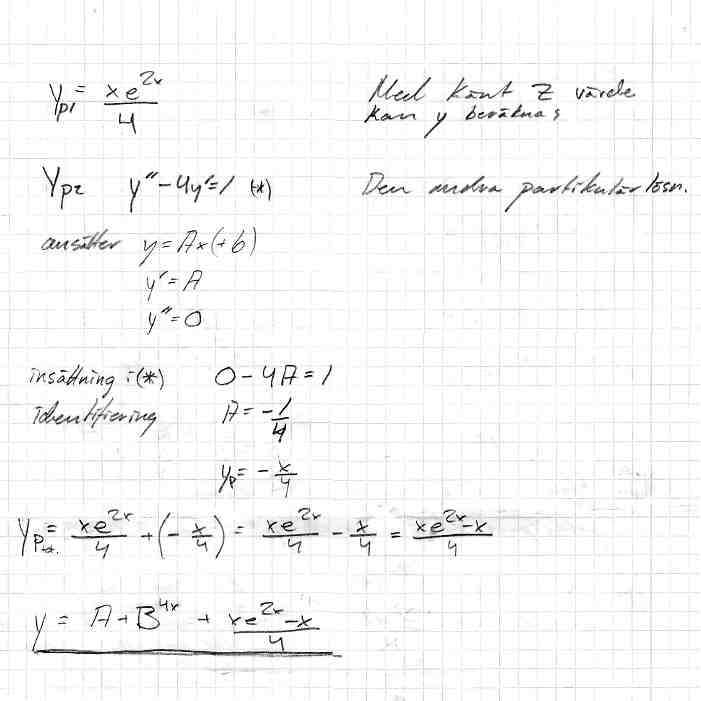 y_p1 = xe^2x/4 Med känt z värde
kan y beräknas
Y_p2 y'' - 4y' = 1 (*) Den andra partikulär lösn.
ansätter y = Ax(+b)
y' = A
y'' = 0
insättning i (*) 0 - 4A = 1
identifiering A = -1/4
y_p = -x/4
y_p tot. = xe^2x/4 + (-x/4) = xe^2x/4 - x/4 = xe^2x-x/4
y = A + B^4x + xe^2x-x/4